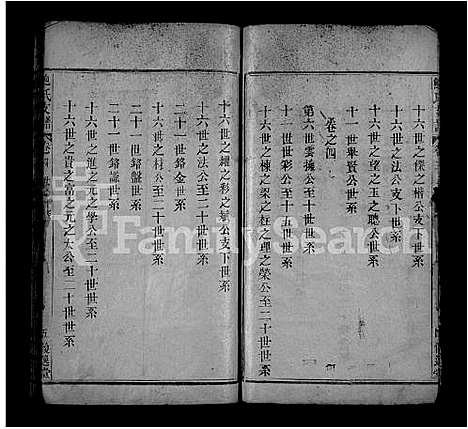 十六世之傑之檜公支下世系
十六世之法公支下世系
十六世之望之玉之聰公支下世系
十一世舉賢公支下世系
卷之四
第六世雲據公支下世系
十一世彩公至十五世世系
十六世之棟之梁之柱之理之榮公至二十世世系
十六世之耀之彩之斌公支下世系
十六世之法公至二十世世系
二十一世鎔金世系
十六世之材公至二十世世系
二十一世鎔盤世系
二十一世鎔謙世系
十六世之進之元之學公至二十世世系
十六世之貴之富之元之太公至二十世世系
鮑氏支譜
卷首
五
FamilySearch